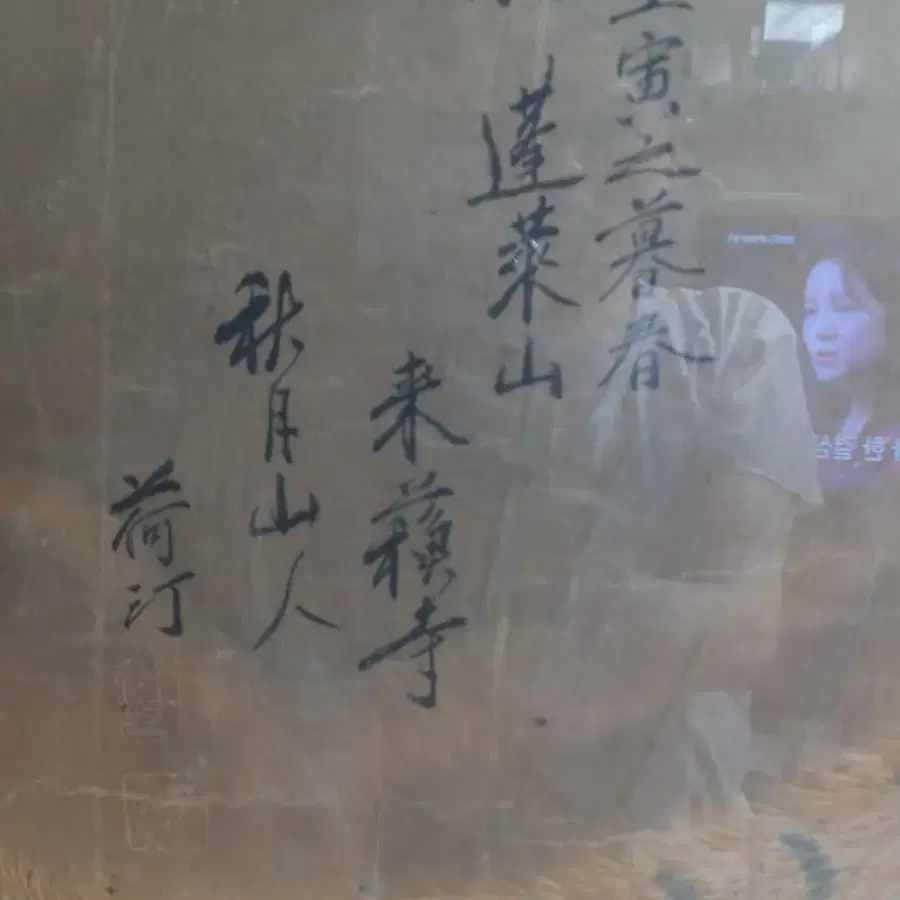 壬寅之暮春
蓬萊山
来蘓寺
秋月山人
荷汀